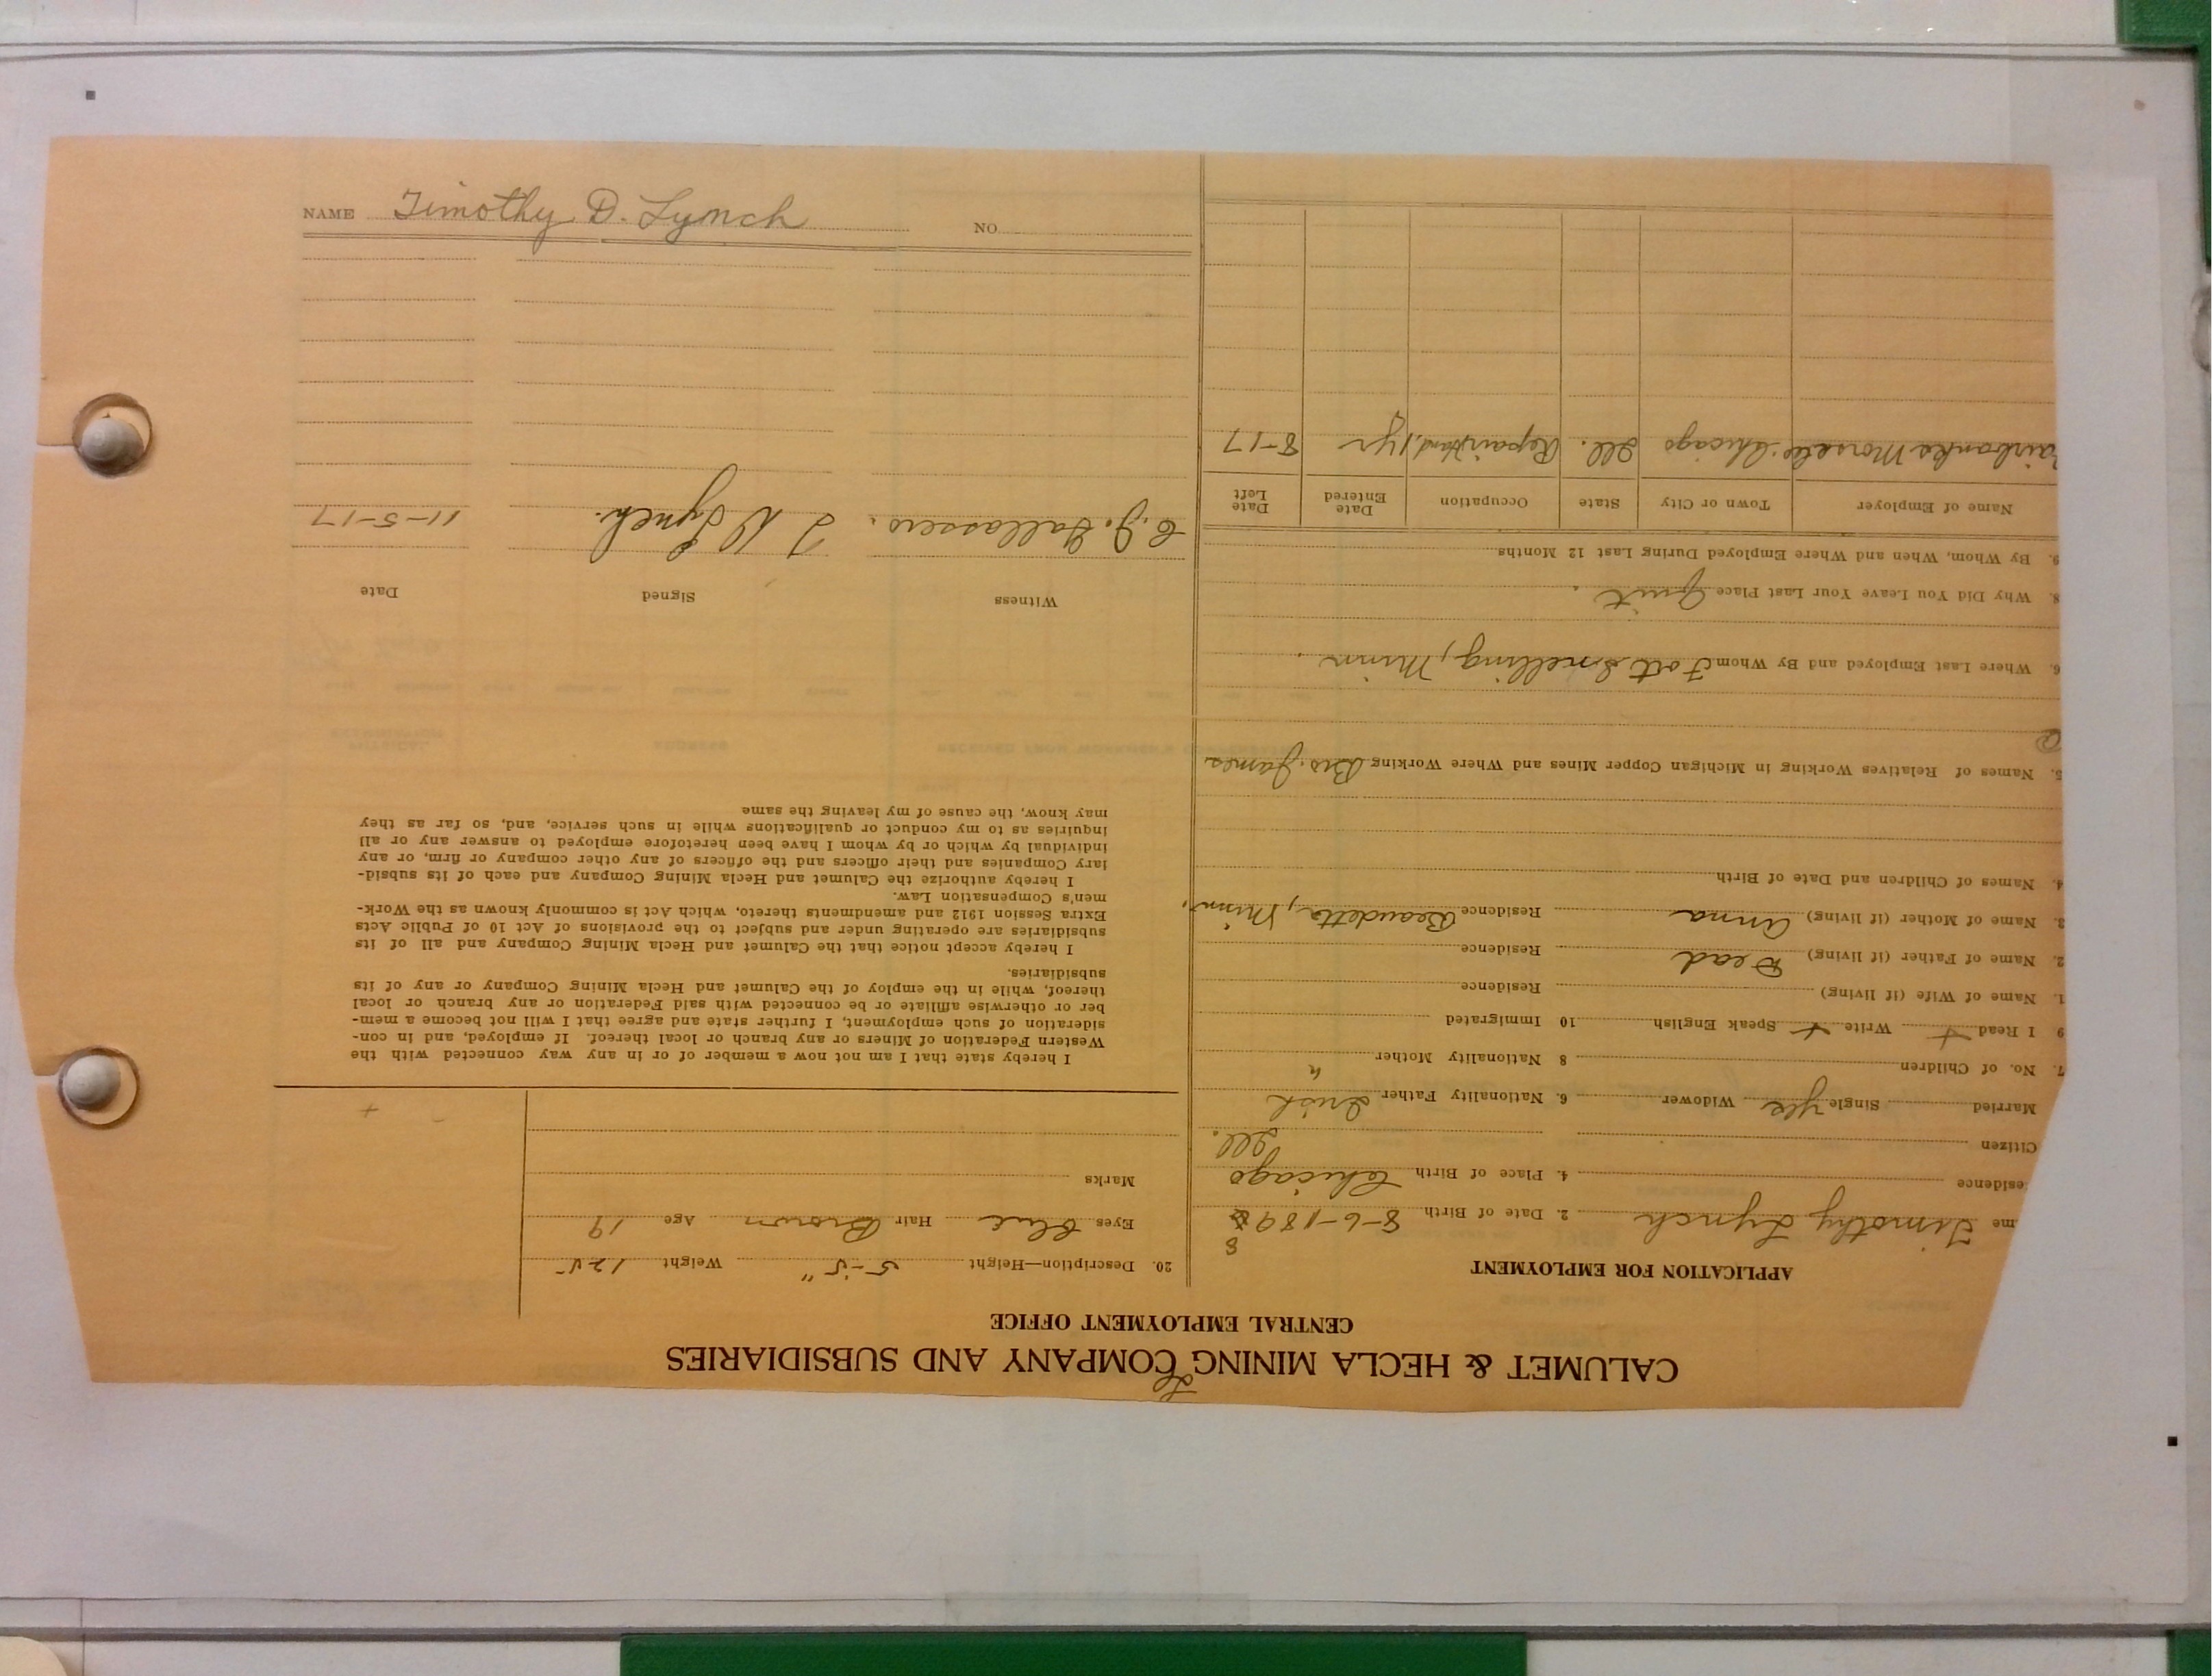 CALUMET & HECLA MINING COMPANY AND SUBSIDIARIES
CENTRAL EMPLOYMENT OFFICE
APPLICATION FOR EMPLOYMENT
me Timothy Lynch 2. Date of Birth 8-6-1898
esidence 4. Place of Birth Chicago
Citizen Ill.
Married Single Yes Widower 6. Nationality Father Irish
7. No. of Children 8 Nationality Mother "
9 I Read + Write + Speak English 10 Immigrated
1. Name of Wife (if living) Residence
2. Name of Father (if living) Dead Residence
3. Name of Mother (if living) Anna Residence Beaudette, Minn.
4. Names of Children and Date of Birth
5. Names of Relatives Working in Michigan Copper Mines and Where Working Bro. James
6. Where Last Employed and By Whom Fort Snelling, Minn.
8. Why Did You Leave Your Last Place Quit.
9. By Whom, When and Where Employed During Last 12 Months
Name of Employer Town or City State Occupation Date Entered Date Left
airbanks Morse Chicago Ill. Repair Hand, 1 yr 8-17
20. Description—Height 5-5" Weight 125
Eyes Blue Hair Brown Age 19
Marks
I hereby state that I am not now a member of or in any way connected with the
Western Federation of Miners or any branch or local thereof. If employed, and in con-
sideration of such employment, I further state and agree that I will not become a mem-
ber or otherwise affiliate or be connected with said Federation or any branch or local
thereof, while in the employ of the Calumet and Hecla Mining Company or any of its
subsidiaries.
I hereby accept notice that the Calumet and Hecla Mining Company and all of its
subsidiaries are operating under and subject to the provisions of Act 10 of Public Acts
Extra Session 1912 and amendments thereto, which Act is commonly known as the Work-
men's Compensation Law.
I hereby authorize the Calumet and Hecla Mining Company and each of its subsid-
iary Companies and their officers and the officers of any other company or firm, or any
individual by which or by whom I have been heretofore employed to answer any or all
inquiries as to my conduct or qualifications while in such service, and, so far as they
may know, the cause of my leaving the same
Witness Signed Date
C. J. T D Lynch. 11-5-17
NAME Timothy D. Lynch NO.